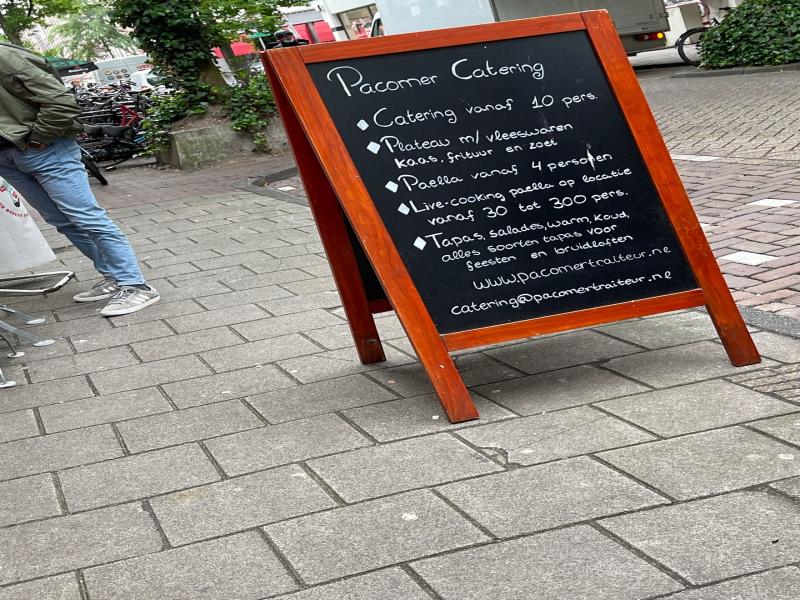 Pacomer Catering
Catering vanaf 10 pers.
Plateau m/ vleeswaren
kaas, frituur en zoet
Paella vanaf 4 personen
Live-cooking paella op locatie
vanaf 30 tot 300 pers.
Tapas, salades, warm, koud,
alles soorten tapas voor
feesten en bruidloften
www.pacomertraiteur.ne
catering@pacomertraiteur.ne